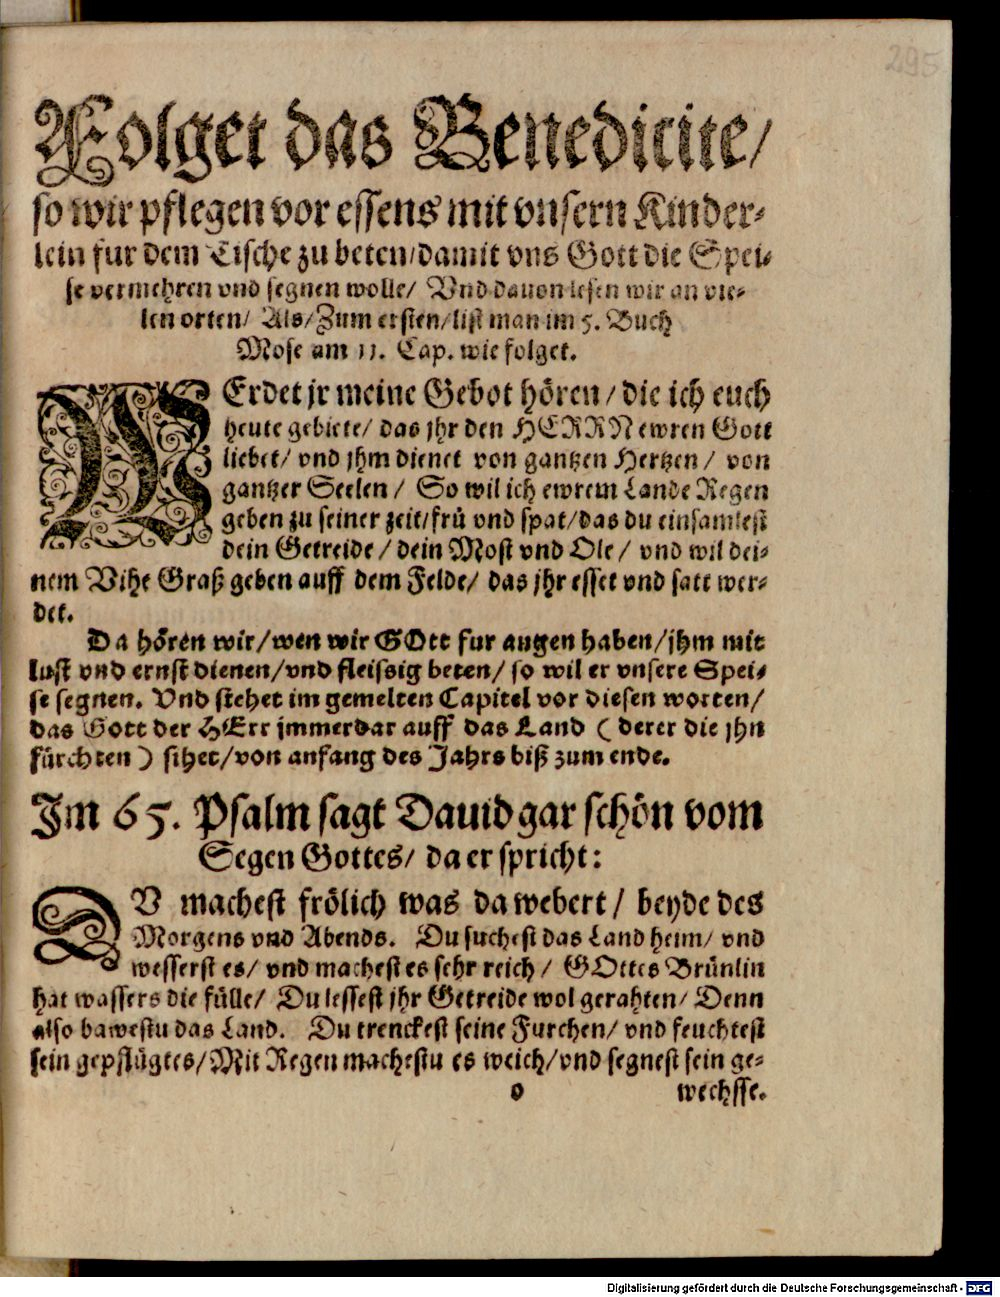 295
Folget das Benedicite/
so wir pflegen vor essens mit vnsern Kinder-
lein fur dem Tische zu beten/damit vns Gott die Spei-
se vermehren vnd segnen wolle/ Vnd dauon lesen wir an vie-
len orten/ Als/Zum ersten/list man im 5. Buch
Mose am 11. Cap. wie folget.
WErdet jr meine Gebot hören/die ich euch
heute gebiete/ das jhr den HERRN ewren Gott
liebet/ vnd jhm dienet von gantzen Hertzen/ von
gantzer Seelen/ So wil ich ewrem Lande Regen
geben zu seiner zeit/frü vnd spat/das du einsamlest
dein Getreide/dein Most vnd Ole/ vnd wil dei-
nem Vihe Graß geben auff dem Felde/ das jhr esset vnd satt wer-
det.
Da hören wir/wen wir GOtt fur augen haben/jhm mit
lust vnd ernst dienen/vnd fleissig beten/ so wil er vnsere Spei-
se segnen. Vnd stehet im gemelten Capitel vor diesen worten/
das Gott der HErr jmmerdar auff das Land ( derer die jhn
fürchten ) sihet/von anfang des Jahrs biß zum ende.
Im 65. Psalm sagt Dauid gar schön vom
Segen Gottes/ da er spricht:
DV machest frölich was da webert/ beyde des
Morgens vnd Abends. Du suchest das Land heim/ vnd
wesserst es/ vnd machest es sehr reich/ GOttes Brünlin
hat wassers die fülle/ Du lessest jhr Getreide wol gerahten/ Denn
also bawestu das Land. Du trenckest seine Furchen/ vnd feuchtest
sein gepflügtes/Mit Regen machestu es weich/vnd segnest sein ge-
o wechsse.
Digitalisierung gefördert durch die Deutsche Forschungsgemeinschaft - DFG